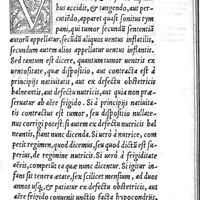 V
bus accidit, & tangendo, aut per-
cutiēdo, apparet quasi sonitus tym
pani, qui tumor secundū sententiā
autoris appellatur, secūdū aliquos uentus inflatiuus,
secundum autem alios appellatur uentus instantis.
Sed tantum est dicere, quantum tumor uentris ex
uentositate, quæ dispositio, aut contracta est à
principijs natiuitatis, aut ex defectu obstetricis
balneantis, aut nutricis defectu, aut quia non præ-
seruatur ab aëre frigido. Si à principijs natiuita-
tis contractus est tumor, seu dispositio nullate-
nus corrigi potest: si autem ex defectu nutricis bal
neantis, fiant nunc dicenda. Si uerò à nutrice, com
petit regimen, quod dicemus, seu quod dictū est su-
perius, de regimine nutricis. Si uerò à frigiditate
aëris, competit ea quæ nunc dicemus. Si igitur in-
fans sit tenera ætate, sex scilicet mensium, ad duos
annos usq;, & patiatur ex defectu obstetricis, aut
aëre frigido conuenit unctio facta hypocondrijs,